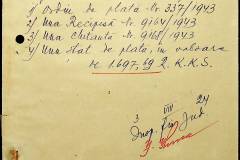 1/ Ordin de plata Nr. 337/1943
2/ Una Recipisă Nr. 9164/1943
3/ Una Chitantă Nr. 9165/1943
4/ Un Stat de plata, in valoare
de 1.697,69 2. K.K.S.
3 VIII 24
Insp. Fin. Jud